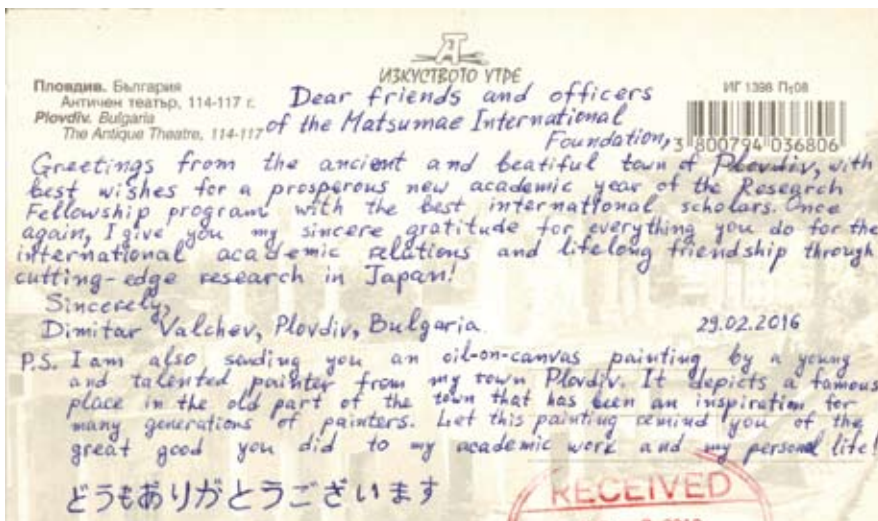 ИЗКУСТВОТО УТРЕ
Пловдив. България
Античен театър, 114-117 г.
Plovdiv. Bulgaria
The Antique Theatre, 114-117
ИГ 1398 Пт08
3 800794 036806
Dear friends and officers
of the Matsumae International
Foundation,
Greetings from the ancient and beatiful town of Plovdiv, with
best wishes for a prosperous new academic year of the Research
Fellowship program with the best international scholars. Once
again, I give you my sincere gratitude for everything you do for the
international academic relations and lifelong friendship through
cutting-edge research in Japan!
Sincerely,
Dimitar Valchev, Plovdiv, Bulgaria 29.02.2016
P.S. I am also sending you an oil-on-canvas painting by a young
and talented painter from my town Plovdiv. It depicts a famous
place in the old part of the town that has been an inspiration for
many generations of painters. Let this painting remind you of the
great good you did to my academic work and my personal life!
どうもありがとうございます
RECEIVED